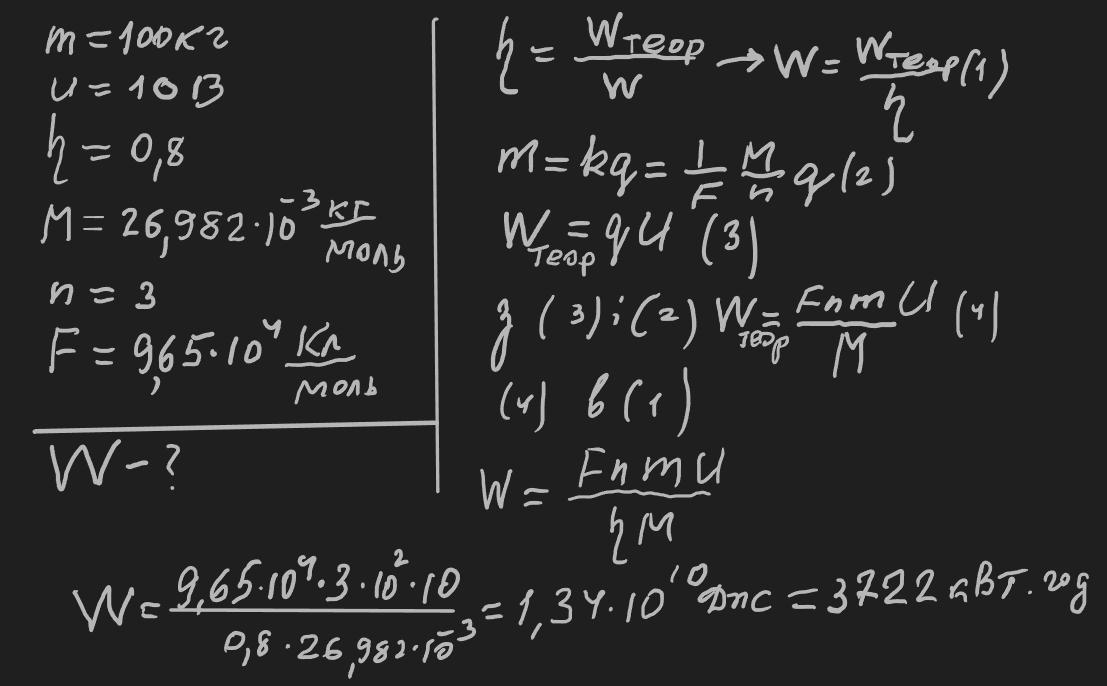 m = 100 кг
U = 10 В
η = 0,8
M = 26,982·10⁻³ кг/моль
n = 3
F = 9,65·10⁴ Кл/моль
W - ?
η = Wтеор/W → W = Wтеор/η (1)
m = kq = 1/F M/n q (2)
Wтеор = qU (3)
з (3) і (2) Wтеор = FnmU/M (4)
(4) в (1)
W = FnmU/ηM
W = 9,65·10⁴·3·10²·10/0,8·26,982·10⁻³ = 1,34·10¹⁰ Дж = 3722 кВт·год